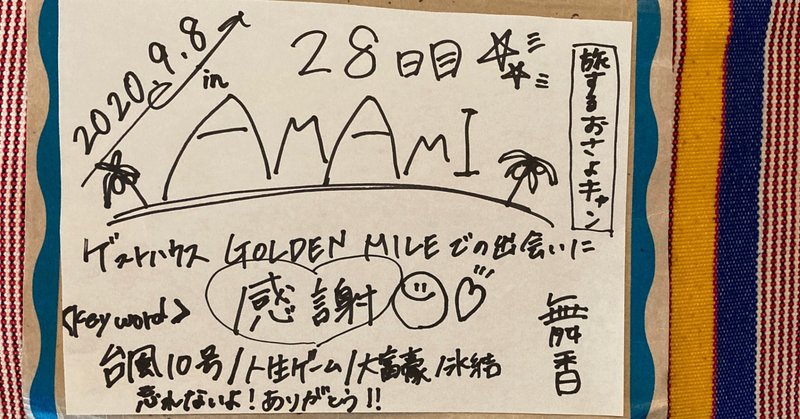 2020.9.8
28日目
in
AMAMI
旅するおさよキャン
ゲストハウス GOLDEN MILEでの出会いに
感謝
<key word>
台風10号/人生ゲーム/大富豪/氷結
忘れないよ!ありがとう!!